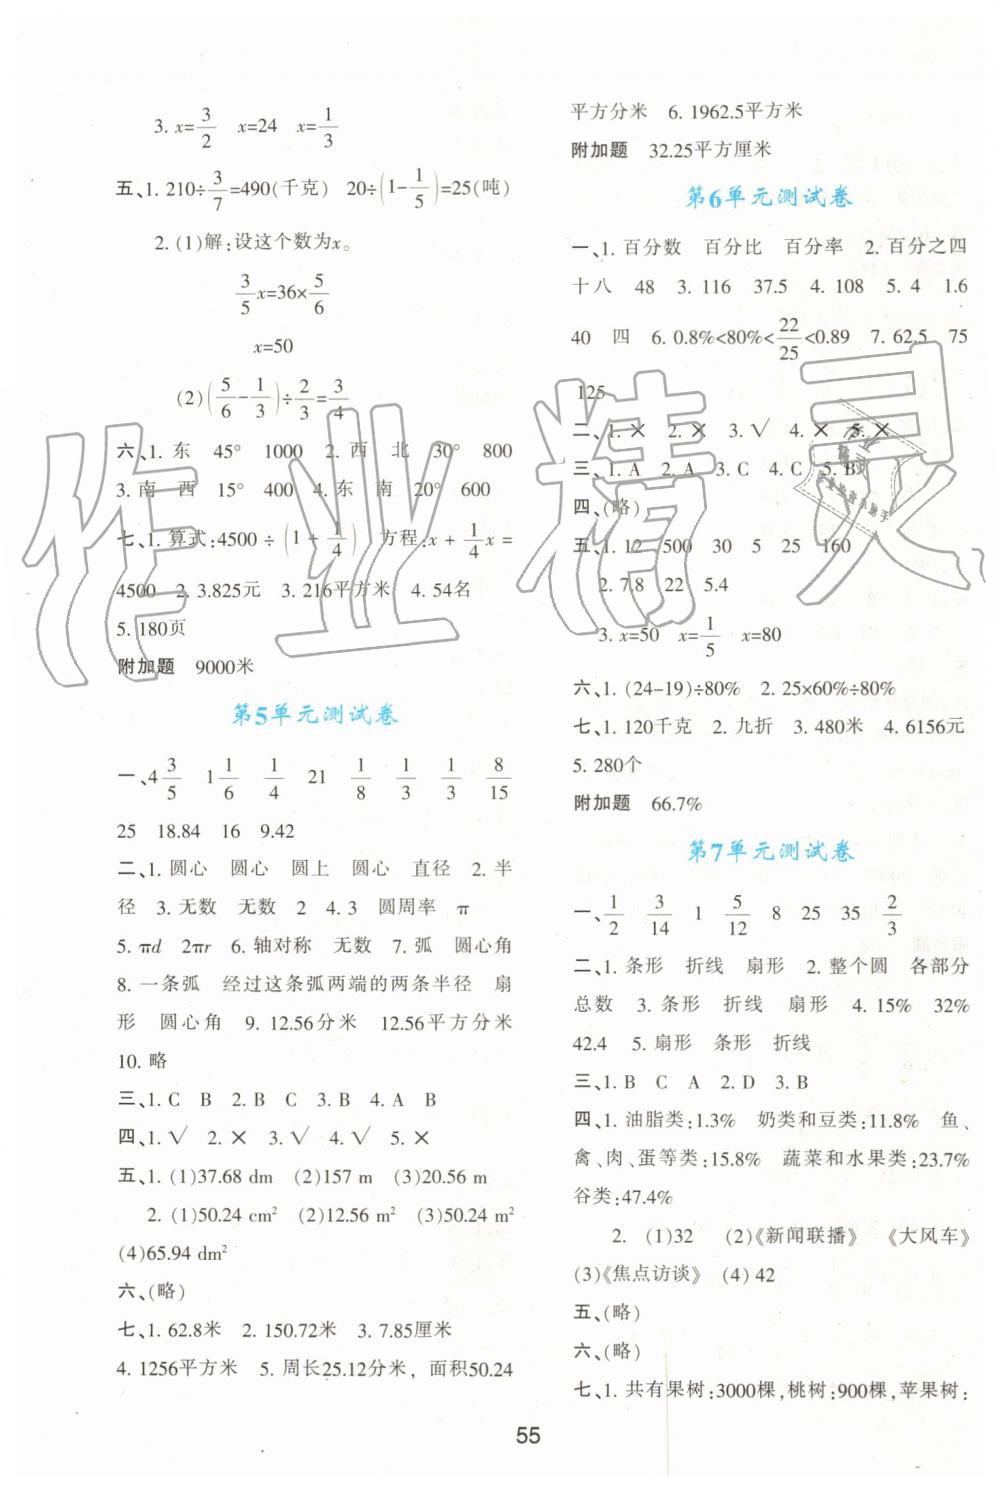 3. x=3/2 x=24 x=1/3
五、1. 210÷3/7=490(千克) 20÷(1-1/5)=25(吨)
2. (1)解:设这个数为x。
3/5x=36×5/6
x=50
(2)(5/6-1/3)÷2/3=3/4
六、1. 东 45° 1000 2. 西 北 30° 800
3. 南 西 15° 400 4. 东 南 20° 600
七、1. 算式:4500÷(1+1/4) 方程:x+1/4x=
4500 2. 3.825元 3. 216平方米 4. 54名
5. 180页
附加题 9000米
第5单元测试卷
一、4 3/5 1 1/6 1/4 21 1/8 1/3 1/3 8/15
25 18.84 16 9.42
二、1. 圆心 圆心 圆上 圆心 直径 2. 半
径 3. 无数 无数 2 4. 3 圆周率 π
5. πd 2πr 6. 轴对称 无数 7. 弧 圆心角
8. 一条弧 经过这条弧两端的两条半径 扇
形 圆心角 9. 12.56分米 12.56平方分米
10. 略
三、1. C B 2. B C 3. B 4. A B
四、1. √ 2. × 3. √ 4. √ 5. ×
五、1. (1)37.68 dm (2)157 m (3)20.56 m
2. (1)50.24 cm² (2)12.56 m² (3)50.24 m²
(4)65.94 dm²
六、(略)
七、1. 62.8米 2. 150.72米 3. 7.85厘米
4. 1256平方米 5. 周长25.12分米，面积50.24
平方分米 6. 1962.5平方米
附加题 32.25平方厘米
第6单元测试卷
一、1. 百分数 百分比 百分率 2. 百分之四
十八 48 3. 116 37.5 4. 108 5. 4 1.6
40 四 6. 0.8%<80%<22/25<0.89 7. 62.5 75
125
二、1. × 2. × 3. √ 4. × 5. ×
三、1. A 2. A 3. C 4. C 5. B
四、(略)
五、1. 12 500 30 5 25 160
2. 7.8 22 5.4
3. x=50 x=1/5 x=80
六、1. (24-19)÷80% 2. 25×60%÷80%
七、1. 120千克 2. 九折 3. 480米 4. 6156元
5. 280个
附加题 66.7%
第7单元测试卷
一、1/2 3/14 1 5/12 8 25 35 2/3
二、1. 条形 折线 扇形 2. 整个圆 各部分
总数 3. 条形 折线 扇形 4. 15% 32%
42.4 5. 扇形 条形 折线
三、1. B C A 2. D 3. B
四、1. 油脂类:1.3% 奶类和豆类:11.8% 鱼、
禽、肉、蛋等类:15.8% 蔬菜和水果类:23.7%
谷类:47.4%
2. (1)32 (2)《新闻联播》 《大风车》
(3)《焦点访谈》 (4) 42
五、(略)
六、(略)
七、1. 共有果树:3000棵,桃树:900棵,苹果树:
55
作业精灵